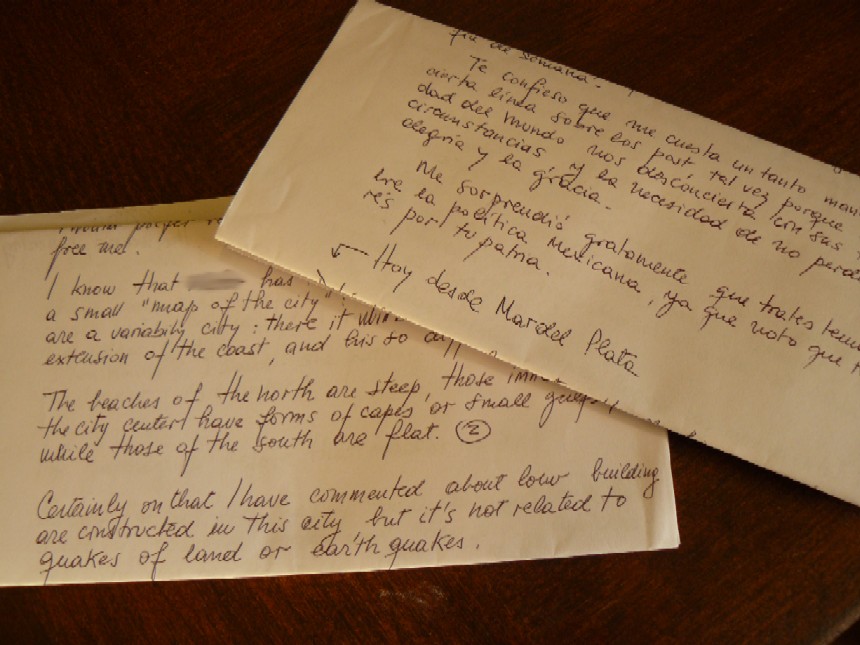 fin de semana.
Te confieso que me cuesta un tanto
cierta línea sobre los post tal vez porque
dad del mundo nos desconcierta con sus
circunstancias, y la necesidad de no
alegría y la gracia.
Me sorprendió gratamente que trates
bre la política Mexicana, ya que noto que
rés por tu patria.
← Hoy desde Mar del Plata
free me.
I know that has
a small "map of the city"
are a variability city: there it
extension of the coast, and
The beaches of the north are steep, those
the city center have forms of capes or small
while those of the south are flat. ②
Certainly on that I have commented about low building
are constructed in this city but it's not related to
quakes of land or earth quakes.